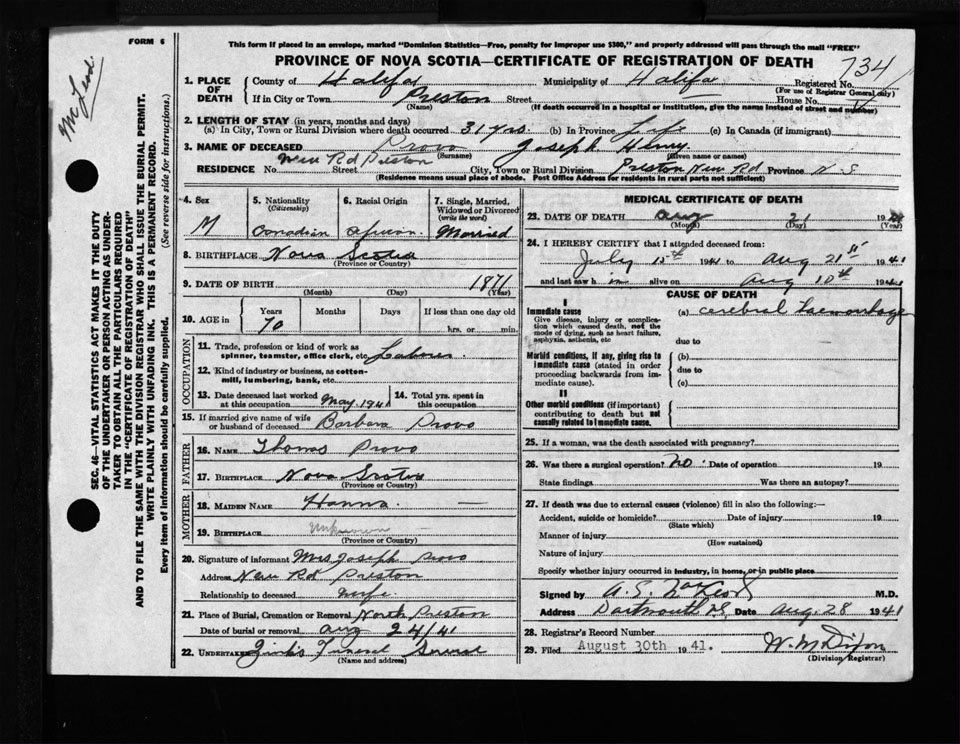 FORM 6
This form if placed in an envelope, marked "Dominion Statistics—Free, penalty for improper use $300," and properly addressed will pass through the mail "FREE"
PROVINCE OF NOVA SCOTIA—CERTIFICATE OF REGISTRATION OF DEATH
734
McLeod
SEC. 46—VITAL STATISTICS ACT MAKES IT THE DUTY
OF THE UNDERTAKER OR PERSON ACTING AS UNDER-
TAKER TO OBTAIN ALL THE PARTICULARS REQUIRED
IN THE "CERTIFICATE OF REGISTRATION OF DEATH"
AND TO FILE THE SAME WITH THE DIVISION REGISTRAR WHO SHALL ISSUE THE BURIAL PERMIT.
WRITE PLAINLY WITH UNFADING INK. THIS IS A PERMANENT RECORD.
Every item of information should be carefully supplied. (See reverse side for instructions.)
1. PLACE OF DEATH County of Halifax Municipality of Halifax Registered No.
(For use of Registrar General only)
If in City or Town Preston Street House No.
(Name) (If death occurred in a hospital or institution, give the name instead of street and number)
2. LENGTH OF STAY (in years, months and days)
(a) In City, Town or Rural Division where death occurred 31 yrs. (b) In Province Life (c) In Canada (if immigrant)
3. NAME OF DECEASED Provo Joseph Henry
(Surname) (Given name or names)
RESIDENCE No. New Rd Preston Street City, Town or Rural Division Preston New Rd Province N S
(Residence means usual place of abode. Post Office Address for residents in rural parts not sufficient)
4. Sex M
5. Nationality (Citizenship) Canadian
6. Racial Origin African
7. Single, Married, Widowed or Divorced (write the word) Married
8. BIRTHPLACE Nova Scotia
(Province or Country)
9. DATE OF BIRTH 1871
(Month) (Day) (Year)
10. AGE in Years Months Days If less than one day old
70 hrs. or min.
OCCUPATION
11. Trade, profession or kind of work as
spinner, teamster, office clerk, etc. Laborer
12. Kind of industry or business, as cotton-
mill, lumbering, bank, etc.
13. Date deceased last worked at this occupation May 1941
14. Total yrs. spent in this occupation
15. If married give name of wife
or husband of deceased Barbara Provo
FATHER
16. NAME Thomas Provo
17. BIRTHPLACE Nova Scotia
(Province or Country)
MOTHER
18. MAIDEN NAME Hanna —
19. BIRTHPLACE Unknown —
(Province or Country)
20. Signature of informant Mrs Joseph Provo
Address New Rd Preston
Relationship to deceased wife
21. Place of Burial, Cremation or Removal North Preston
Date of burial or removal Aug 24/41
22. UNDERTAKER Zink's Funeral Service
(Name and address)
MEDICAL CERTIFICATE OF DEATH
23. DATE OF DEATH Aug 21 19
(Month) (Day) (Year)
24. I HEREBY CERTIFY that I attended deceased from:
July 15th 1941 to Aug 21st 1941
and last saw him alive on Aug 10th 1941
CAUSE OF DEATH
I
Immediate cause (a) cerebral haemorrhage
Give disease, injury or complica-
tion which caused death, not the
mode of dying, such as heart failure,
asphyxia, asthenia, etc
due to
Morbid conditions, if any, giving rise to (b)
immediate cause (stated in order due to
proceeding backwards from im-
mediate cause). (c)
II
Other morbid conditions (if important)
contributing to death but not
causally related to immediate cause.
25. If a woman, was the death associated with pregnancy?
26. Was there a surgical operation? no. Date of operation 19
State findings Was there an autopsy?
27. If death was due to external causes (violence) fill in also the following:—
Accident, suicide or homicide? Date of injury 19
(State which)
Manner of injury
(How sustained)
Nature of injury
Specify whether injury occurred in industry, in home, or in public place
Signed by A. S. McLeod M.D.
Address Dartmouth N.S. Date Aug. 28 1941
28. Registrar's Record Number
29. Filed August 30th 1941. W. M. Dixon
(Division Registrar)